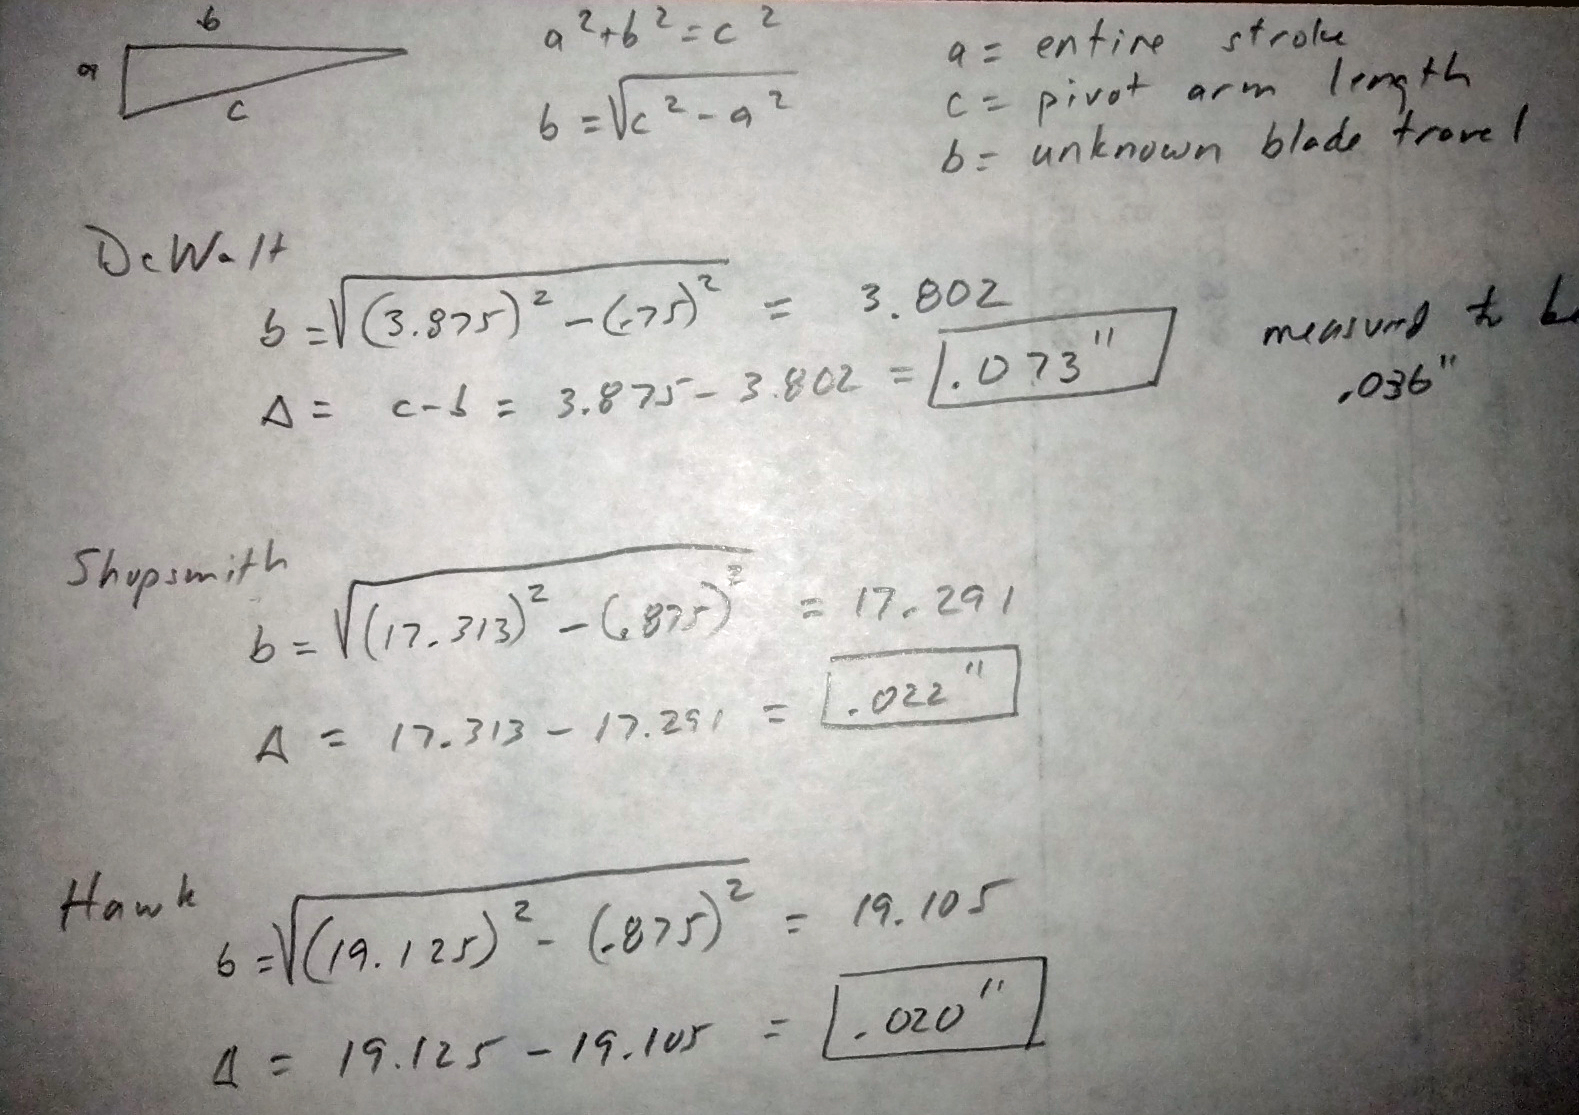 b
a
c
a²+b²=c²
b=√c²-a²
a= entire stroke
c= pivot arm length
b= unknown blade travel
DeWalt
b=√(3.875)²-(.75)² = 3.802
Δ= c-b = 3.875-3.802 = .073"
measured to be
.036"
Shopsmith
b=√(17.313)²-(.875)² = 17.291
Δ = 17.313-17.291 = .022"
Hawk
b=√(19.125)²-(.875)² = 19.105
Δ = 19.125-19.105 = .020"